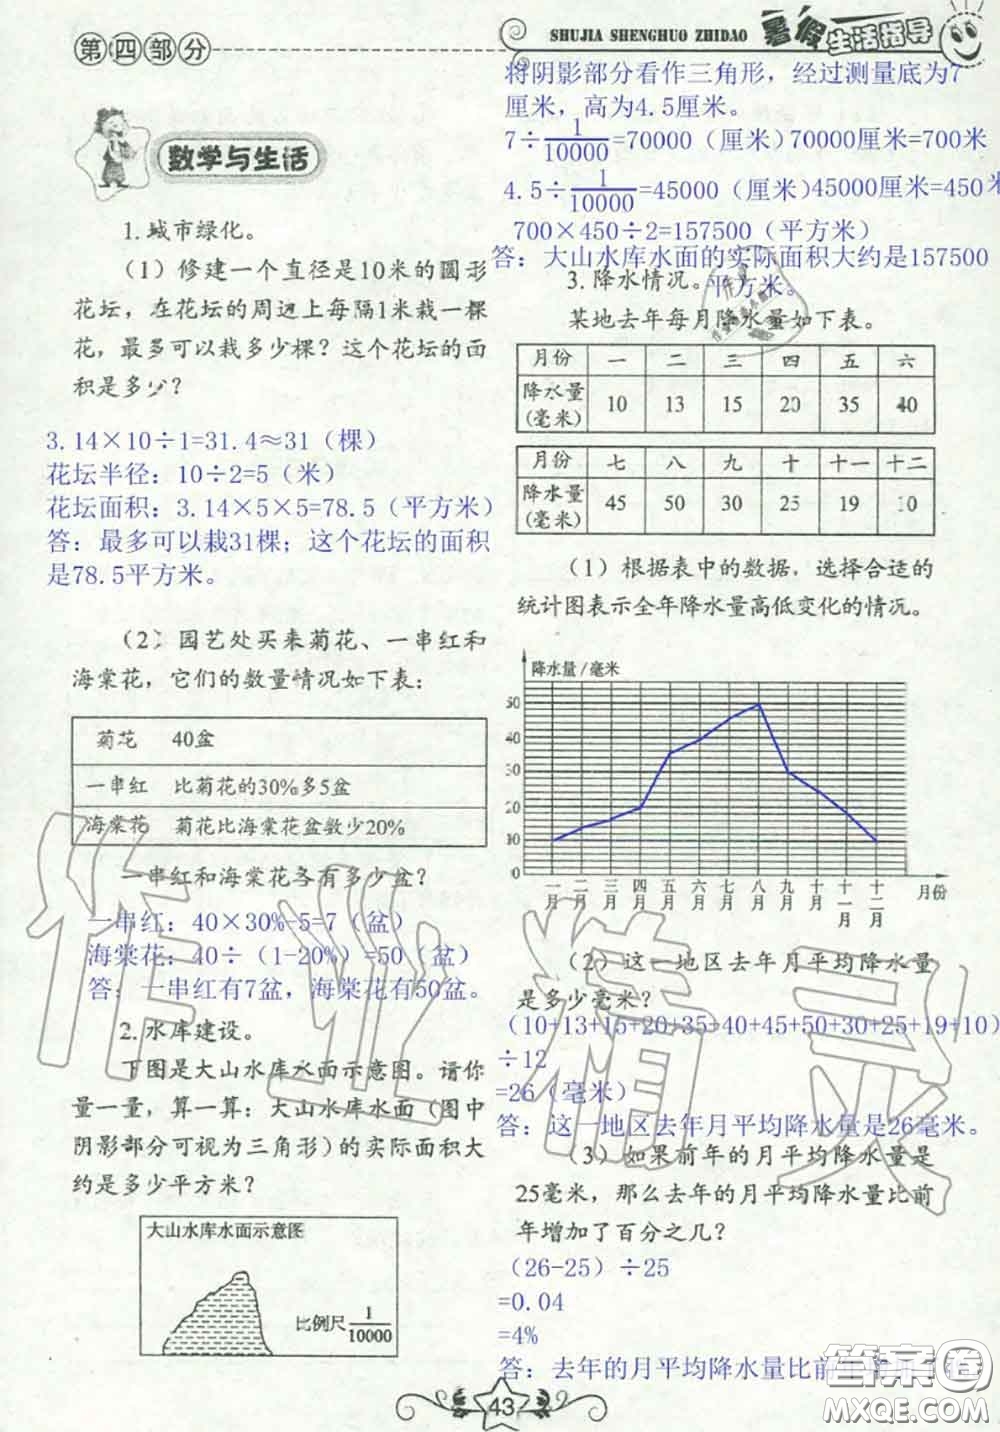 第四部分
SHUJIA SHENGHUO ZHIDAO 暑假生活指导
数学与生活
1.城市绿化。
(1)修建一个直径是10米的圆形
花坛，在花坛的周边上每隔1米栽一棵
花，最多可以栽多少棵？这个花坛的面
积是多少？
3.14×10÷1=31.4≈31（棵）
花坛半径：10÷2=5（米）
花坛面积：3.14×5×5=78.5（平方米）
答：最多可以栽31棵；这个花坛的面积
是78.5平方米。
(2)园艺处买来菊花、一串红和
海棠花，它们的数量情况如下表：
菊花 40盆
一串红 比菊花的30%多5盆
海棠花 菊花比海棠花盆数少20%
一串红和海棠花各有多少盆？
一串红：40×30%-5=7（盆）
海棠花：40÷（1-20%）=50（盆）
答：一串红有7盆，海棠花有50盆。
2.水库建设。
下图是大山水库水面示意图。请你
量一量，算一算：大山水库水面（图中
阴影部分可视为三角形）的实际面积大
约是多少平方米？
大山水库水面示意图
比例尺 1/10000
将阴影部分看作三角形，经过测量底为7
厘米，高为4.5厘米。
7÷1/10000=70000（厘米）70000厘米=700米
4.5÷1/10000=45000（厘米）45000厘米=450米
700×450÷2=157500（平方米）
答：大山水库水面的实际面积大约是157500
平方米。
3.降水情况。
某地去年每月降水量如下表。
月份 一 二 三 四 五 六
降水量(毫米) 10 13 15 20 35 40
月份 七 八 九 十 十一 十二
降水量(毫米) 45 50 30 25 19 10
(1)根据表中的数据，选择合适的
统计图表示全年降水量高低变化的情况。
降水量/毫米
50
40
30
20
10
0
一月 二月 三月 四月 五月 六月 七月 八月 九月 十月 十一月 十二月 月份
(2)这一地区去年月平均降水量
是多少毫米？
（10+13+15+20+35+40+45+50+30+25+19+10）
÷12
=26（毫米）
答：这一地区去年月平均降水量是26毫米。
(3)如果前年的月平均降水量是
25毫米，那么去年的月平均降水量比前
年增加了百分之几？
（26-25）÷25
=0.04
=4%
答：去年的月平均降水量比前年
43
作业精灵
答案圈
MXQE.COM